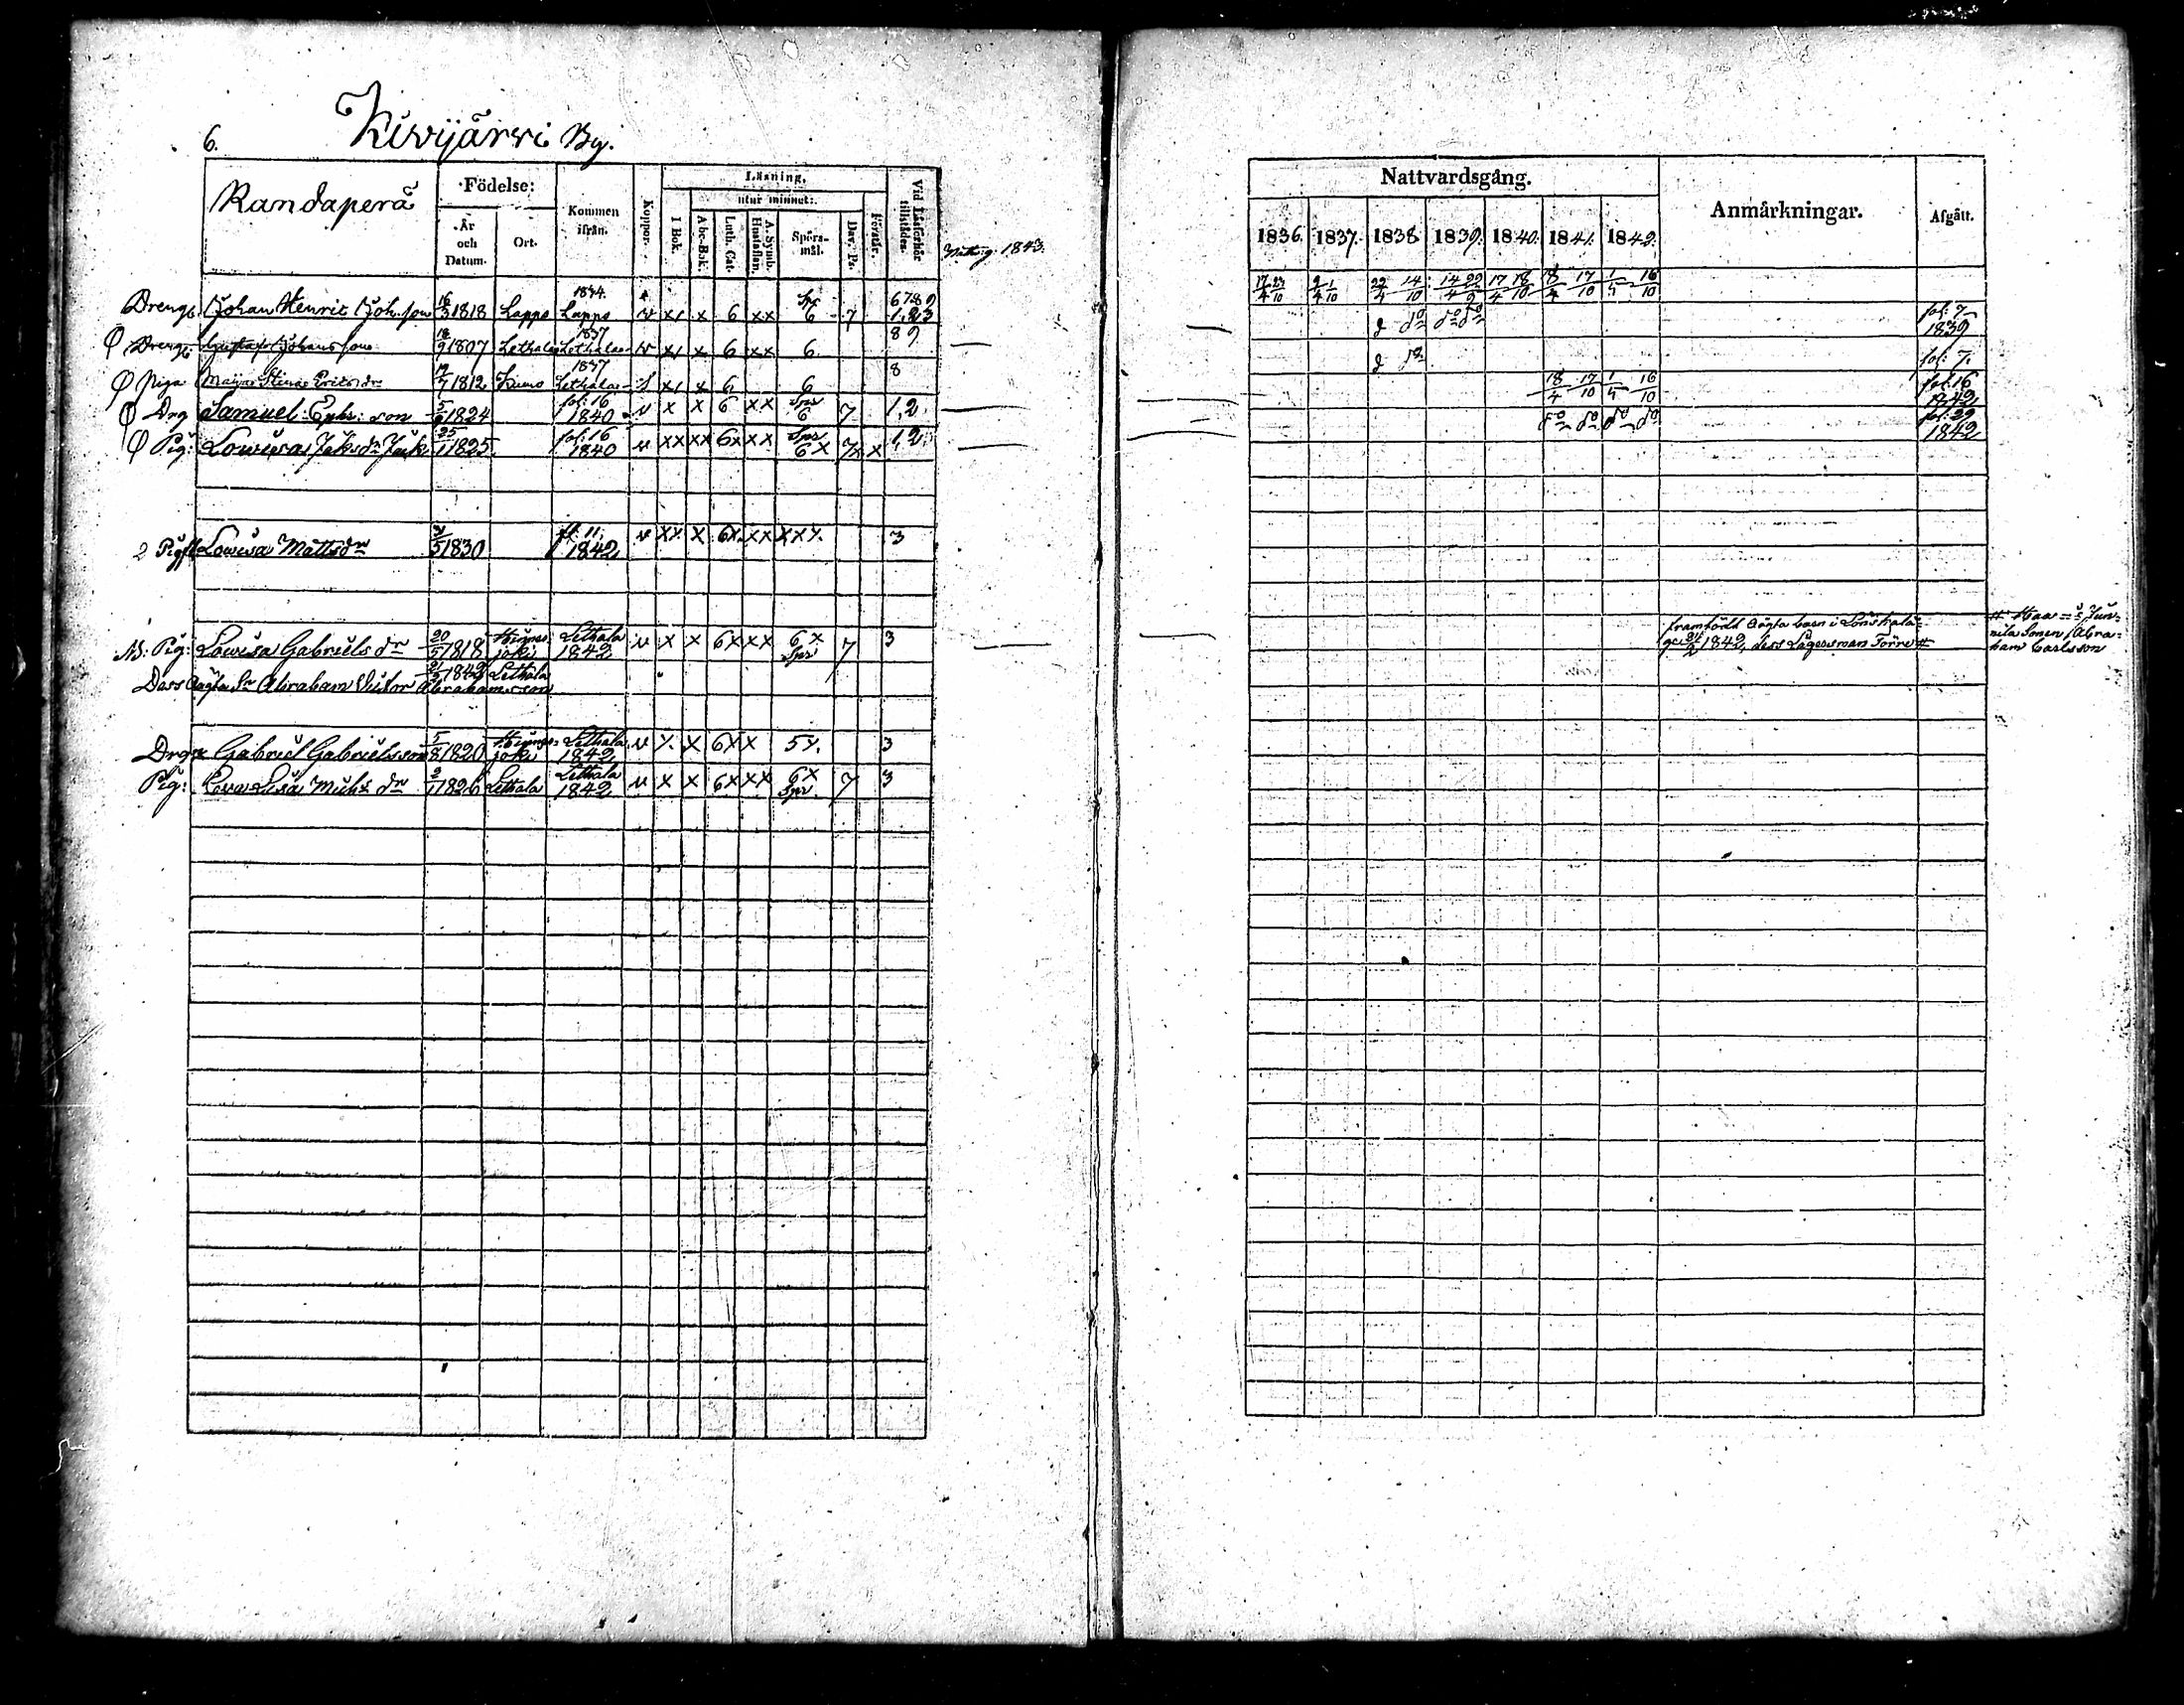 6. Kivijärvi By.
Randaperä
Födelse: År och Datum. Ort. Kommen ifrån. Koppor. Läsning, I Bok. utur minnet: Abc-Bok. Luth. Cat. A. Symb. Hustaflan. Spörs-mål. Dav. Ps. Förstår. Vid Läsförhör tillstädes.
Nattv.g. 1843.
Dreng Johan Henric Joh.son 16/3 1818 Lappo 1834. Lappo v x x 6 xx Spr 6 7 6789 1,2,3
Dreng Gustaf Johansson 18/9 1807 Lethala 1837 Lethala v x x 6 xx 6 89
Piga Maija Stina Ericsdr 19/7 1812 Kumo 1837 Lethala x x 6 6 8
Drg Samuel Ephr: son 5/9 1824 fol: 16 1840 v x x 6 xx Spr 6 7 1,2
Pig: Lowisa Jaksdr Jack 25/1 1825 fol: 16 1840 v xx xx 6x xx Spr 6x 7x x 1,2.
2 Pigfl Lowisa Mattsdr 5 1830 fl. 11. 1842 v xx x 6x xx xxx. 3
Pig: Lowisa Gabriels dr 20/5 1818 Hinner joki Lethala 1842 v x x 6x xx 6x Spr 7 3
Dess oägta Sn Abraham Victor Abrahamsson 21/2 1842 Lethala
Drg Gabriel Gabrielsson 5/8 1820 joki Lethala 1842 v x. x 6x x 5x. 3
Pig: Eva Lisa Michs dr 2/1 1826 Lethala Lethala 1842 v x x 6x xx 6x Spr 7 3
Nattvardsgång. Anmärkningar. Afgått.
1836. 1837. 1838. 1839. 1840. 1841. 1842.
17/4 23/10 2/4 1/10 22/4 14/10 14/4 22/9 17/4 18/10 18/4 17/10 1/5 16/10
do do do fol: 7 1839
do fol: 7.
18/4 17/10 1/5 16/10 fol: 16 1842
do do do do fol: 22 1842
framfödt oägta barn i
21/2 1842, dess Lägersman Törne #
# Haa = s Jun=
nila Sonen Abra=
ham Carlsson